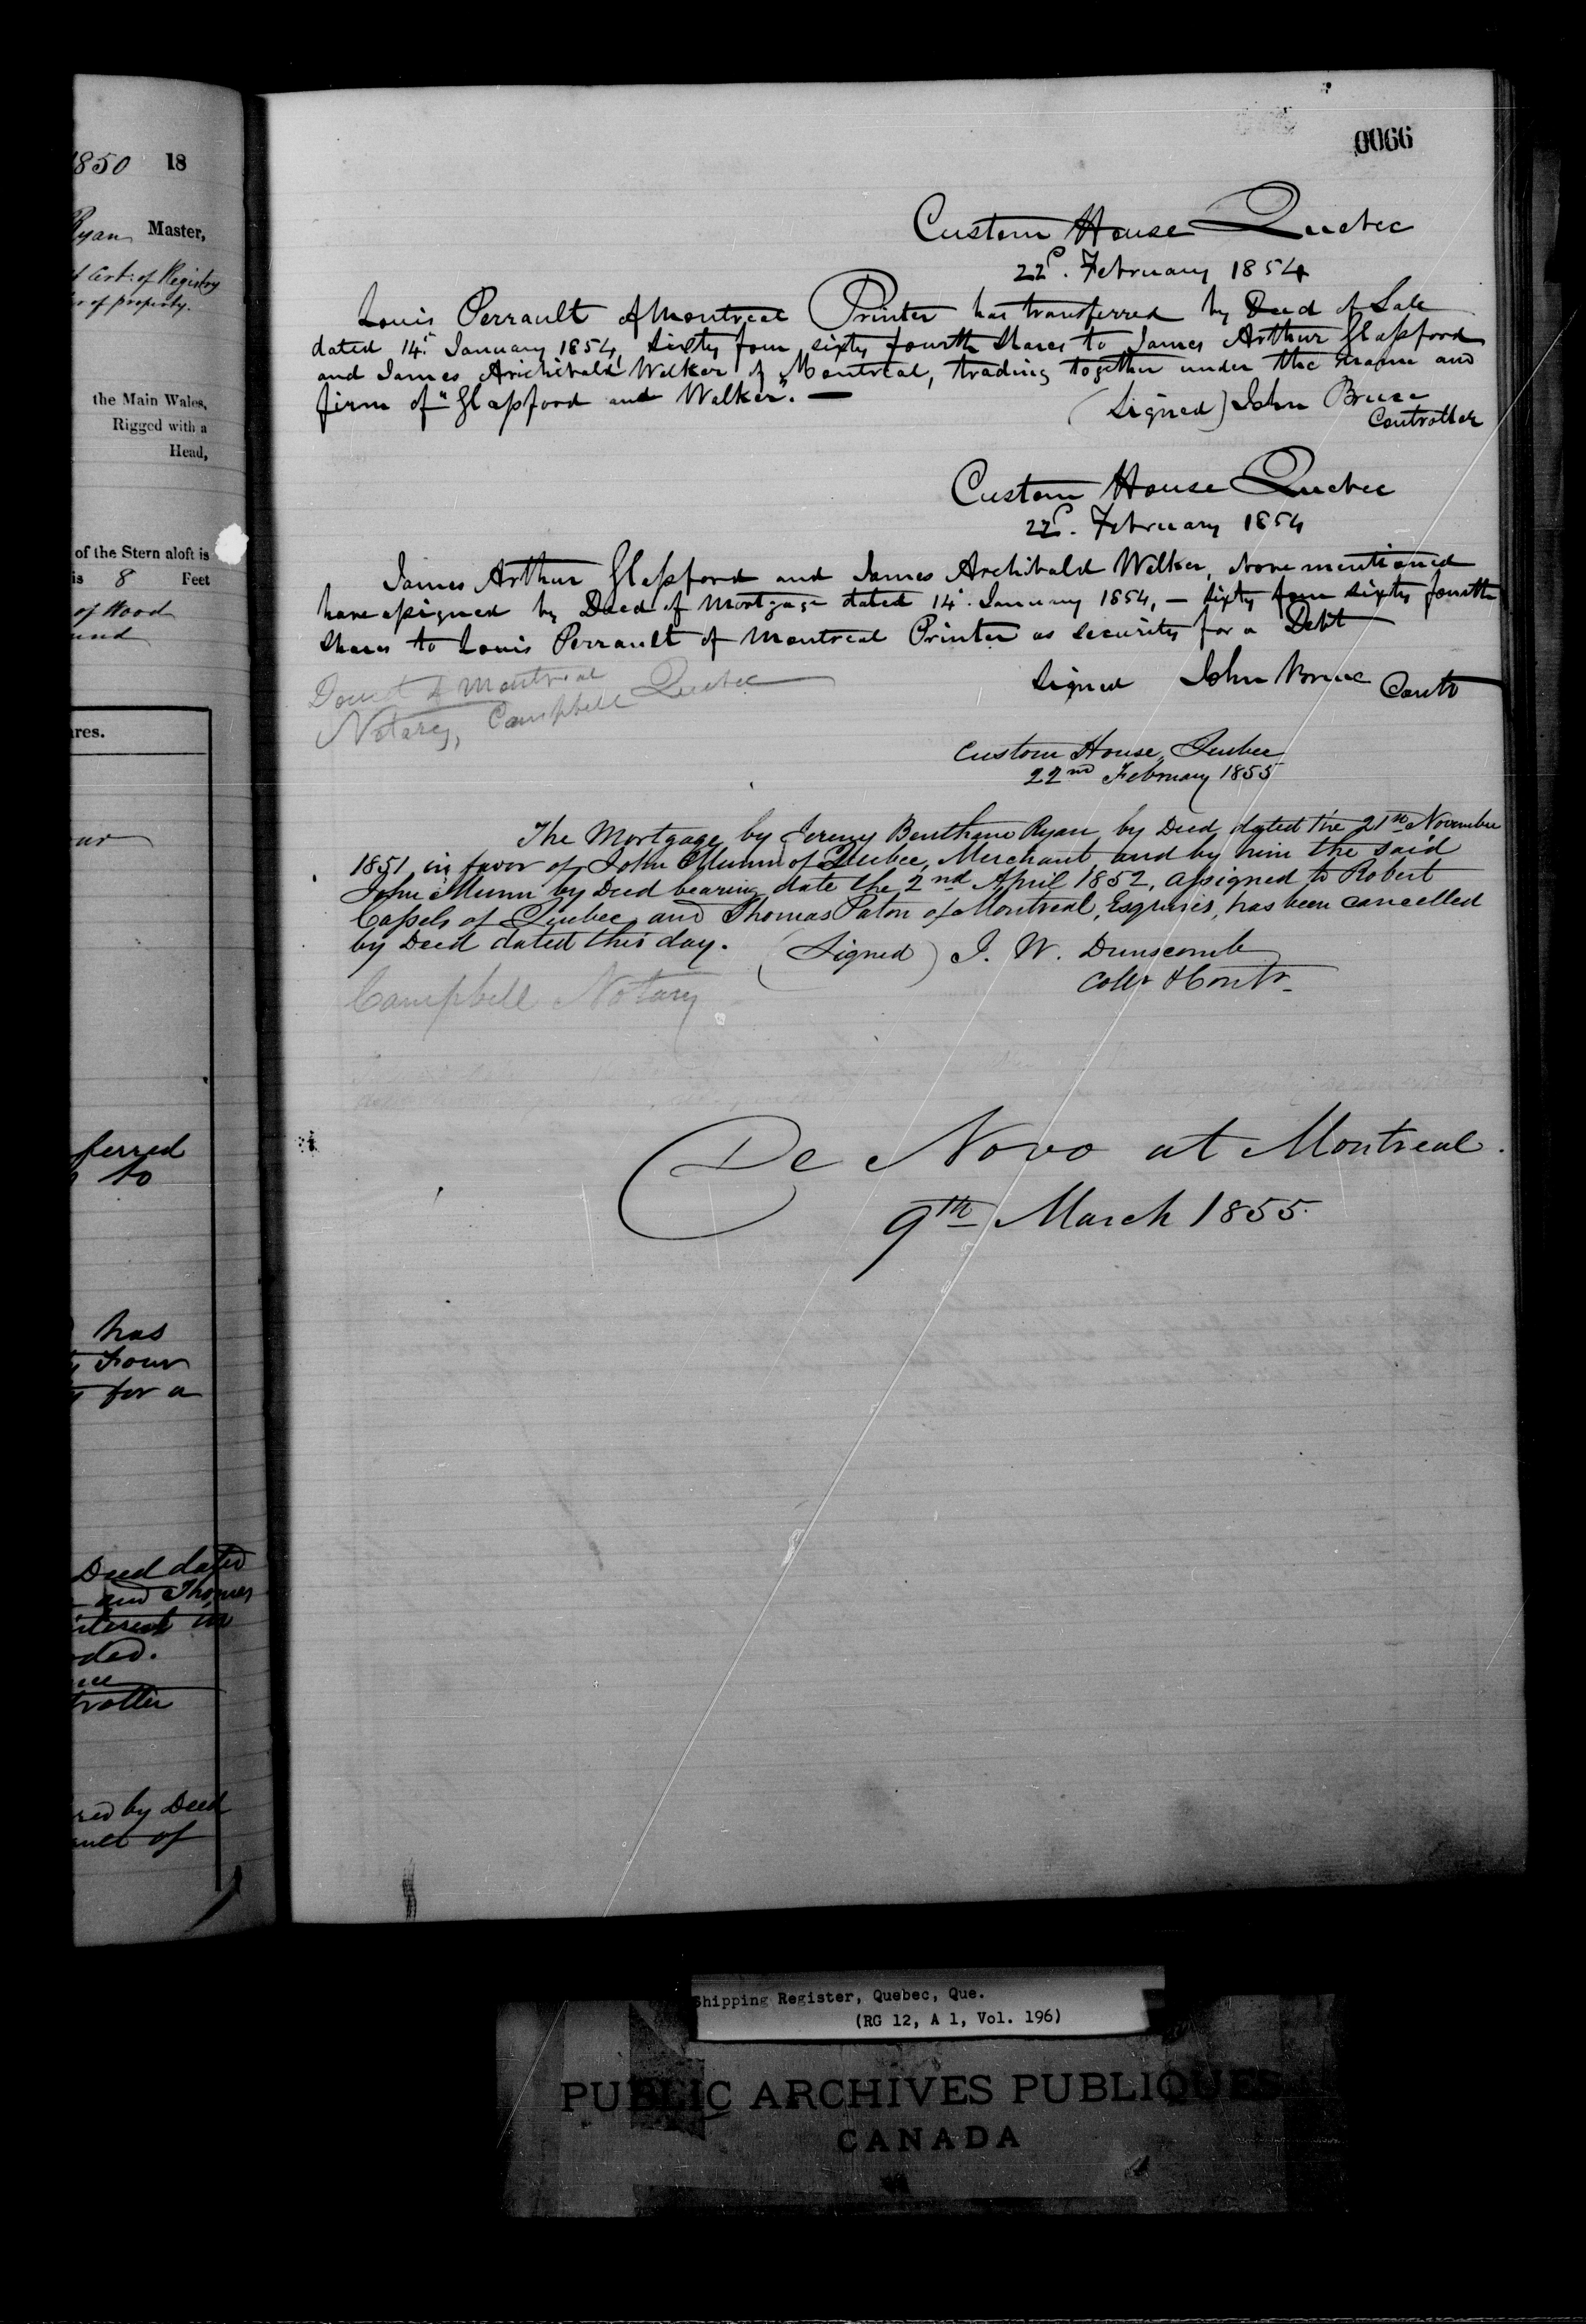 1850 18
Ryan Master,
Cert: of Registry
of property.
the Main Wales,
Rigged with a
Head,
of the Stern aloft is
is 8 Feet
of Wood
und
res.
ferred
to
has
Four
for a
Deed dated
and Thomas
interest in
ded.
troller
red by Deed
ault of
0066
Custom House Quebec
22d. February 1854
Louis Perrault of Montreal Printer has transferred by Deed of Sale
dated 14. January 1854, Sixty four sixty fourth Shares to James Arthur Glassford
and James Archibald Walker of Montreal, trading together under the name and
firm of "Glassford and Walker." —
(Signed) John Bruce
Controller
Custom House Quebec
22d. February 1854
James Arthur Glassford and James Archibald Walker, above mentioned
have assigned by Deed of Mortgage dated 14. January 1854, — Sixty four sixty fourth
Shares to Louis Perrault of Montreal Printer as Security for a Debt
Signed John Bruce Contr
Doucet of Montreal
Notary, Campbell Quebec
Custom House, Quebec
22nd February 1855
The Mortgage by Jeremy Bentham Ryan by Deed dated the 21st November
1851 in favor of John Munn of Quebec, Merchant, and by him the said
John Munn by Deed bearing date the 2nd April 1852, assigned to Robert
Cassels of Quebec and Thomas Paton of Montreal, Esquires, has been cancelled
by Deed dated this day. (Signed) J. W. Dunscomb
Collr & Contr
Campbell Notary
De Novo at Montreal.
9th March 1855.
Shipping Register, Quebec, Que.
(RG 12, A 1, Vol. 196)
PUBLIC ARCHIVES PUBLIQUES
CANADA